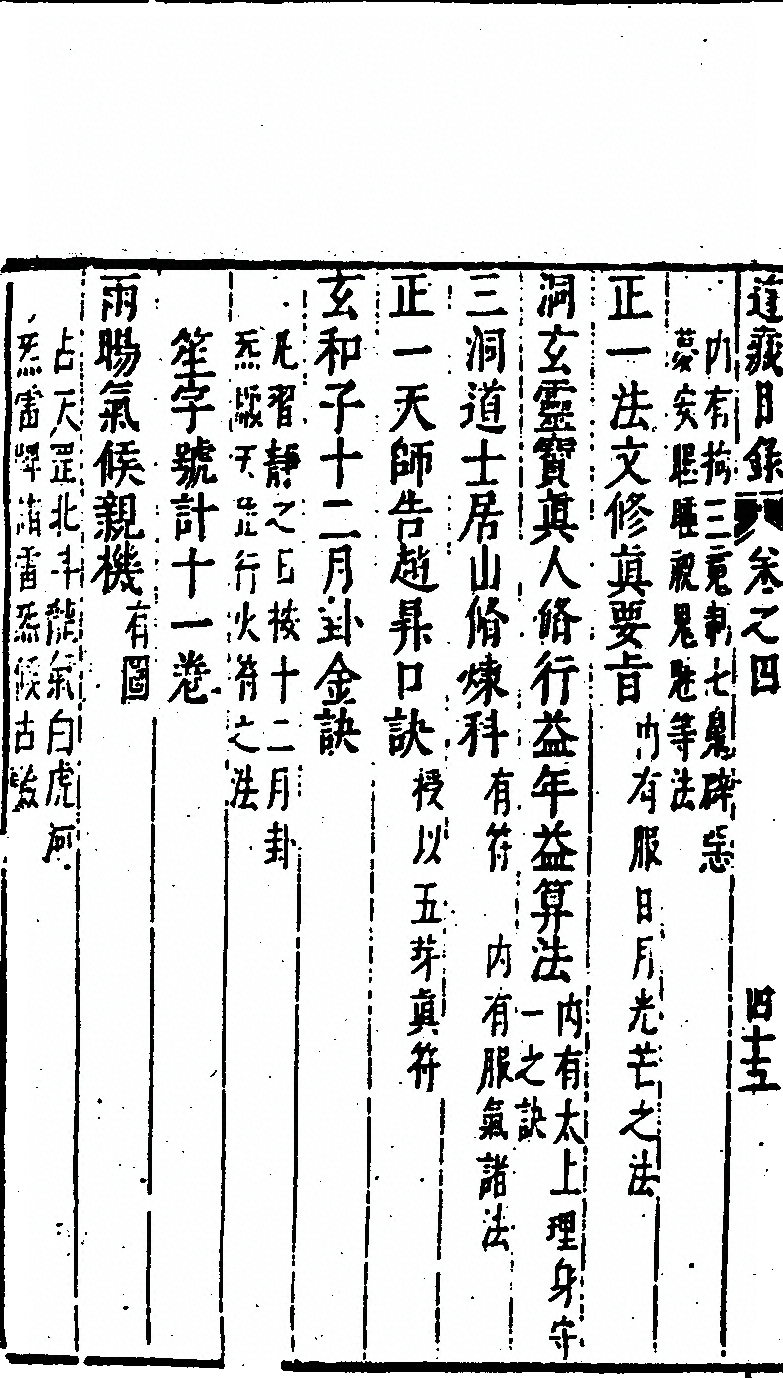 道藏目錄 卷之四 四十五
內有拘三魂制七魄辟惡
夢安寢睡視鬼魅等法
正一法文修真要旨 內有服日月光芒之法
洞玄靈寶真人修行益年益算法 內有太上理身守
一之訣
三洞道士居山修煉科 有符 內有服氣諸法
正一天師告趙昇口訣 授以五芽真符
玄和子十二月卦金訣
凡習靜之日按十二月卦
炁 天 行火符之法
笙字號計十一卷
雨暘氣候親機 有圖
占天罡北斗龍氣白虎河
炁雷 雷炁候占